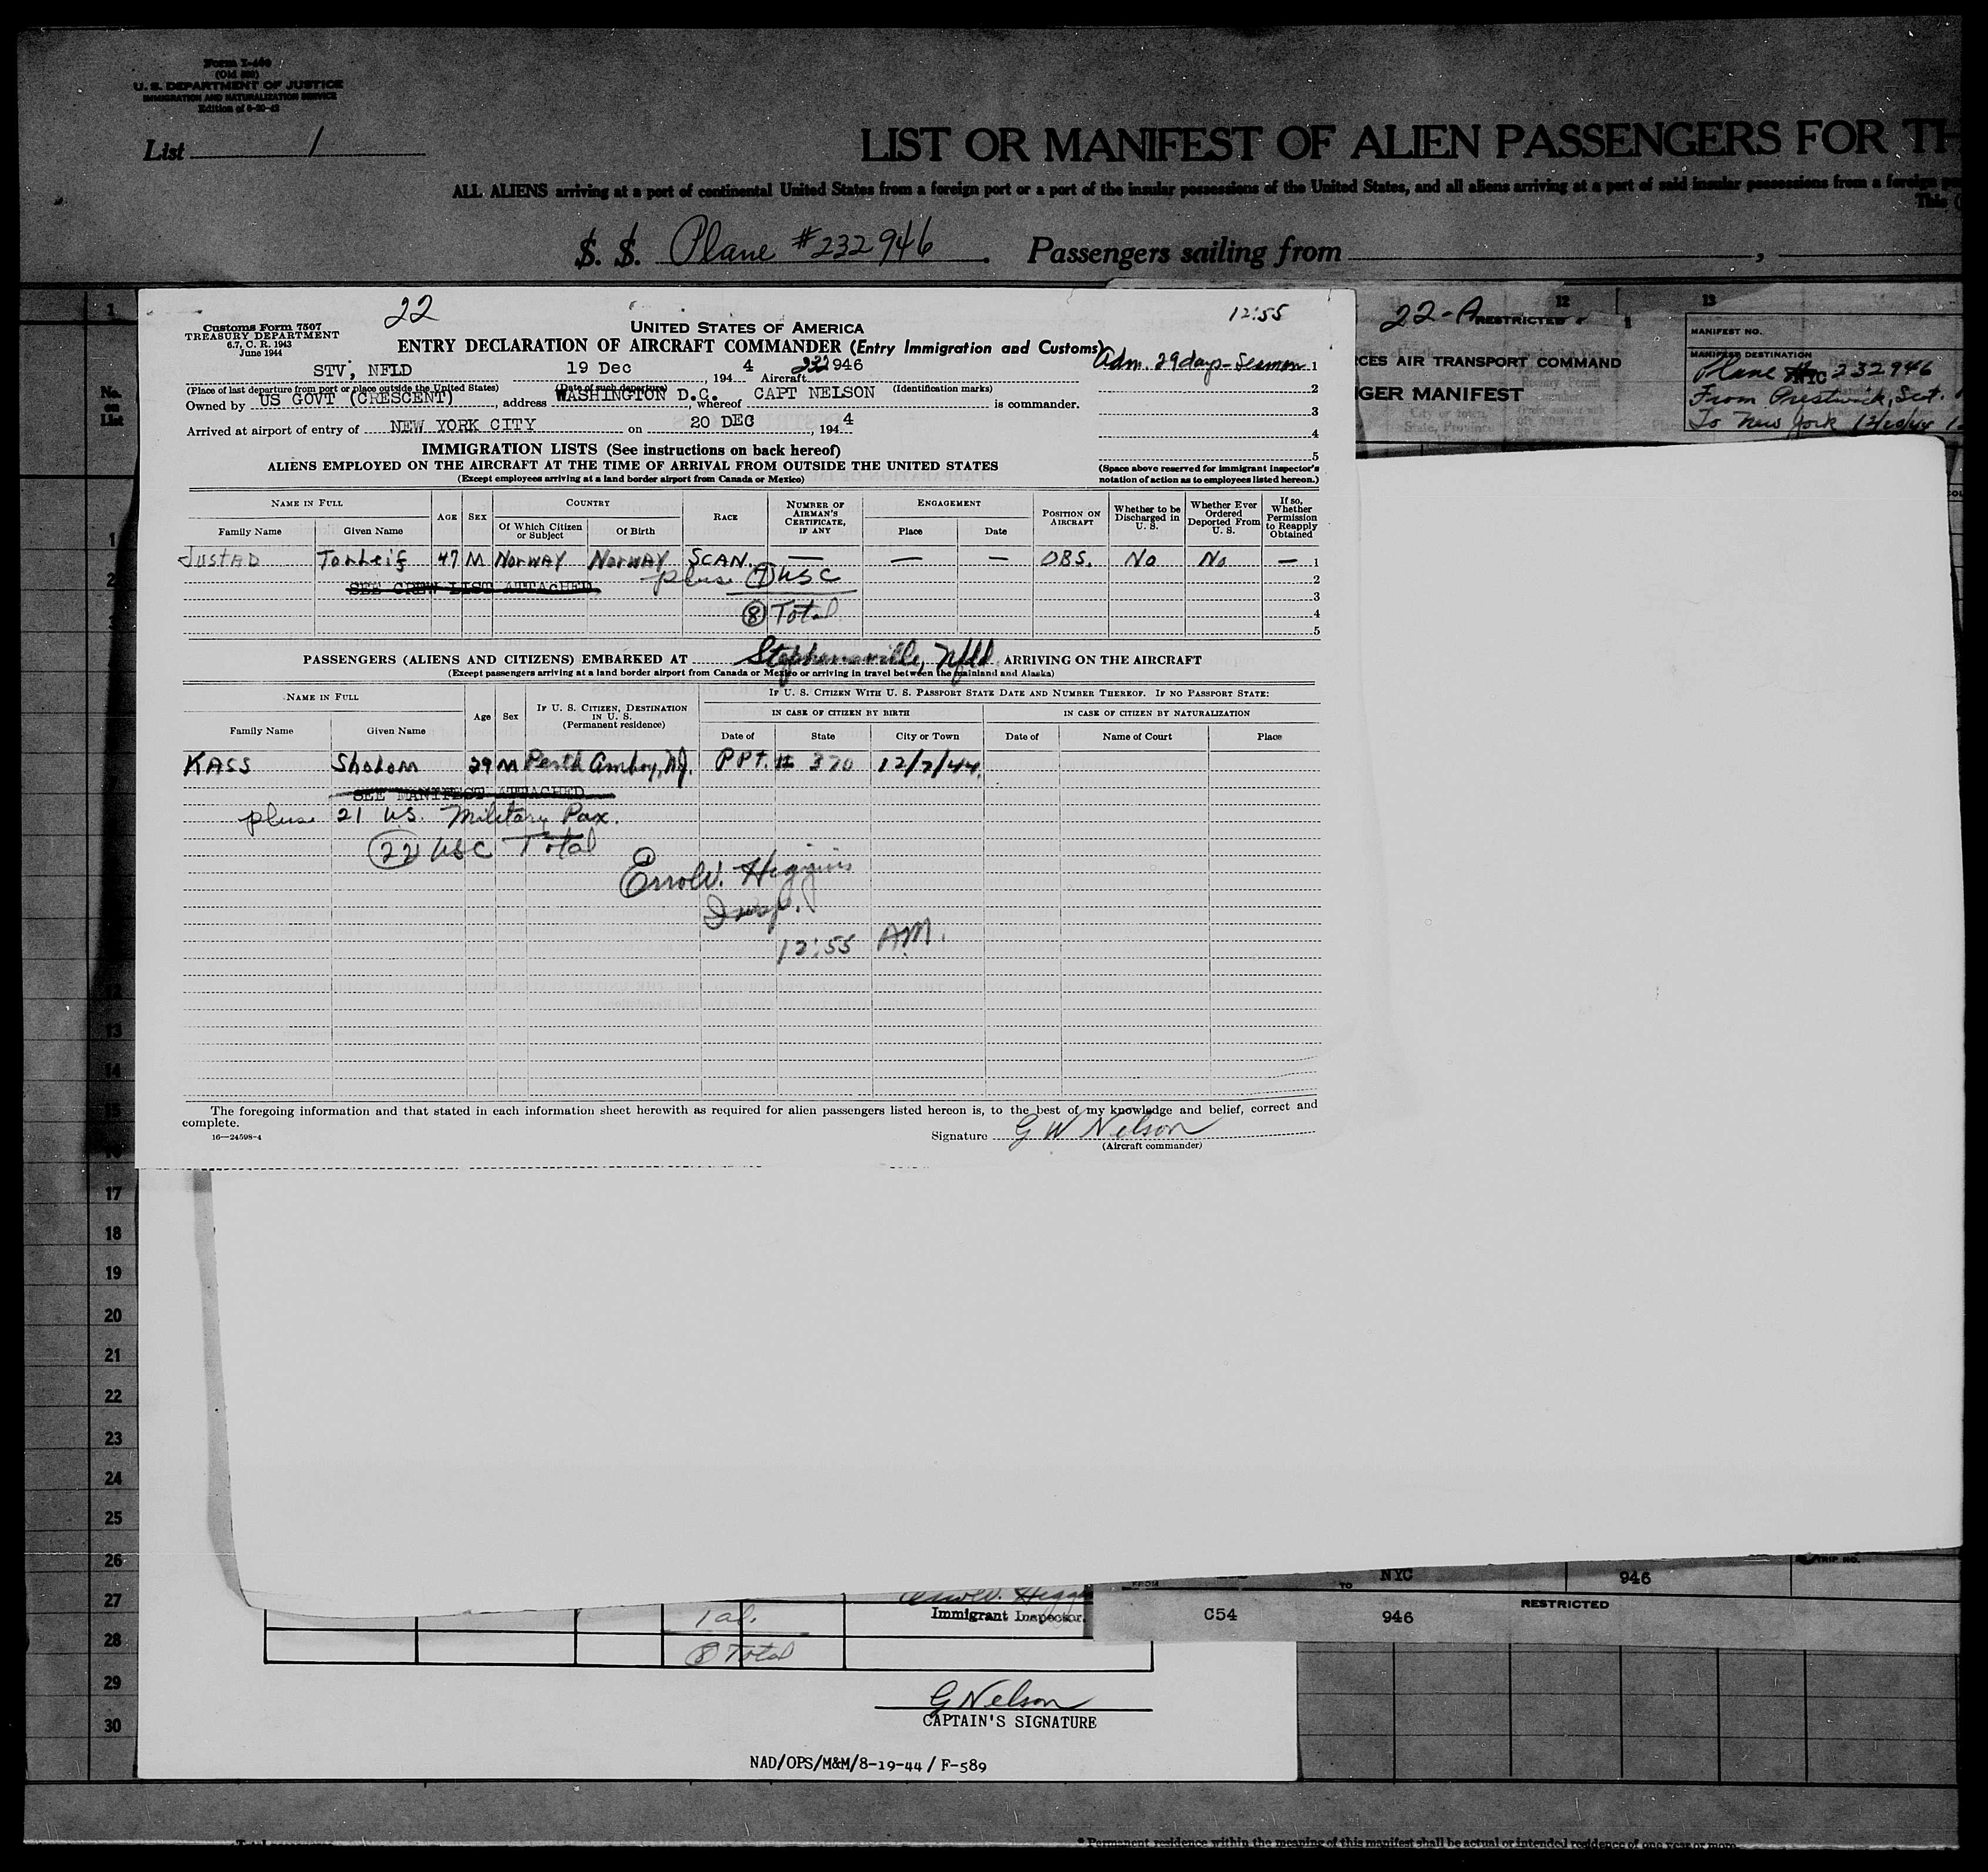 Form I-466
(Old 500)
U. S. DEPARTMENT OF JUSTICE
IMMIGRATION AND NATURALIZATION SERVICE
List 1
LIST OR MANIFEST OF ALIEN PASSENGERS FOR TH
ALL ALIENS arriving at a port of continental United States from a foreign port or a port of the insular possessions of the United States, and all aliens arriving at a port of said insular possessions from a foreign
This
S. S. Plane #232946 . Passengers sailing from ,
1
12
13
No. on List
22
12:55
Customs Form 7507
TREASURY DEPARTMENT
6.7, C. R. 1943
June 1944
UNITED STATES OF AMERICA
ENTRY DECLARATION OF AIRCRAFT COMMANDER (Entry Immigration and Customs)
Adm. 29 days - Seaman 1
STV, NFLD 19 Dec , 194 4 Aircraft 232946
(Place of last departure from port or place outside the United States) (Date of such departure) (Identification marks)
2
Owned by US GOVT (CRESCENT) , address WASHINGTON D.C. , whereof CAPT NELSON is commander.
3
Arrived at airport of entry of NEW YORK CITY on 20 DEC , 194 4
4
5
IMMIGRATION LISTS (See instructions on back hereof)
ALIENS EMPLOYED ON THE AIRCRAFT AT THE TIME OF ARRIVAL FROM OUTSIDE THE UNITED STATES
(Except employees arriving at a land border airport from Canada or Mexico)
(Space above reserved for immigrant inspector's
notation of action as to employees listed hereon.)
NAME IN FULL
Family Name Given Name
AGE SEX
COUNTRY
Of Which Citizen or Subject Of Birth
RACE
NUMBER OF AIRMAN'S CERTIFICATE, IF ANY
ENGAGEMENT
Place Date
POSITION ON AIRCRAFT
Whether to be Discharged in U. S.
Whether Ever Ordered Deported From U. S.
If so, Whether Permission to Reapply Obtained
JUSTAD Torleif 47 M Norway Norway SCAN. — — — OBS. No No — 1
SEE CREW LIST ATTACHED plus 7 USC 2
3
8 Total 4
5
PASSENGERS (ALIENS AND CITIZENS) EMBARKED AT Stephenville, Nfld ARRIVING ON THE AIRCRAFT
(Except passengers arriving at a land border airport from Canada or Mexico or arriving in travel between the mainland and Alaska)
NAME IN FULL
Family Name Given Name
Age Sex
IF U. S. CITIZEN, DESTINATION IN U. S. (Permanent residence)
IF U. S. CITIZEN WITH U. S. PASSPORT STATE DATE AND NUMBER THEREOF. IF NO PASSPORT STATE:
IN CASE OF CITIZEN BY BIRTH IN CASE OF CITIZEN BY NATURALIZATION
Date of State City or Town Date of Name of Court Place
KASS Sholom 29 M Perth Amboy, N.J. PPT. # 370 12/7/44.
SEE MANIFEST ATTACHED
plus 21 U.S. Military Pax.
22 USC Total
Errol W. Higgins
Insp.
12:55 AM.
The foregoing information and that stated in each information sheet herewith as required for alien passengers listed hereon is, to the best of my knowledge and belief, correct and
complete.
16—24598-4
Signature G W Nelson
(Aircraft commander)
22-A RESTRICTED
CES AIR TRANSPORT COMMAND
GER MANIFEST
MANIFEST NO.
MANIFEST DESTINATION
NYC
Plane # 232946
From Prestwick, Scot.
To New York 12/20/44
1
2
12
13
14
15
17
18
19
20
21
22
23
24
25
26
27
28
29
30
FROM TO NYC 946 TRIP NO.
C54 946 RESTRICTED
1 al.
8 Total
Immigrant Inspector.
G Nelson
CAPTAIN'S SIGNATURE
NAD/OPS/M&M/8-19-44 / F-589
* Permanent residence within the meaning of this manifest shall be actual or intended residence of one year or more.